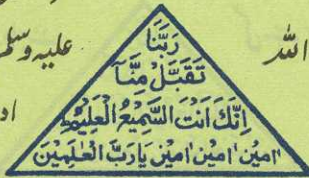 اللہ
علیہ وسلم
رَبَّنَا
تَقَبَّلْ مِنَّآ
اِنَّكَ اَنْتَ السَّمِيْعُ الْعَلِيْمُ
اٰمِيْن اٰمِيْن اٰمِيْن يَارَبَّ الْعٰلَمِيْنَ